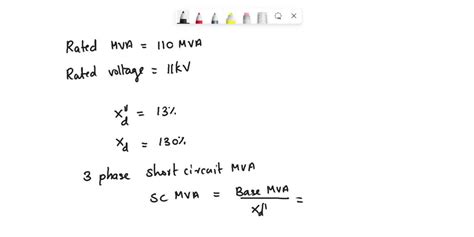 Rated MVA = 110 MVA
Rated voltage = 11kV
X"d = 13%
Xd = 130%
3 phase short circuit MVA
SC MVA = Base MVA / Xd" =